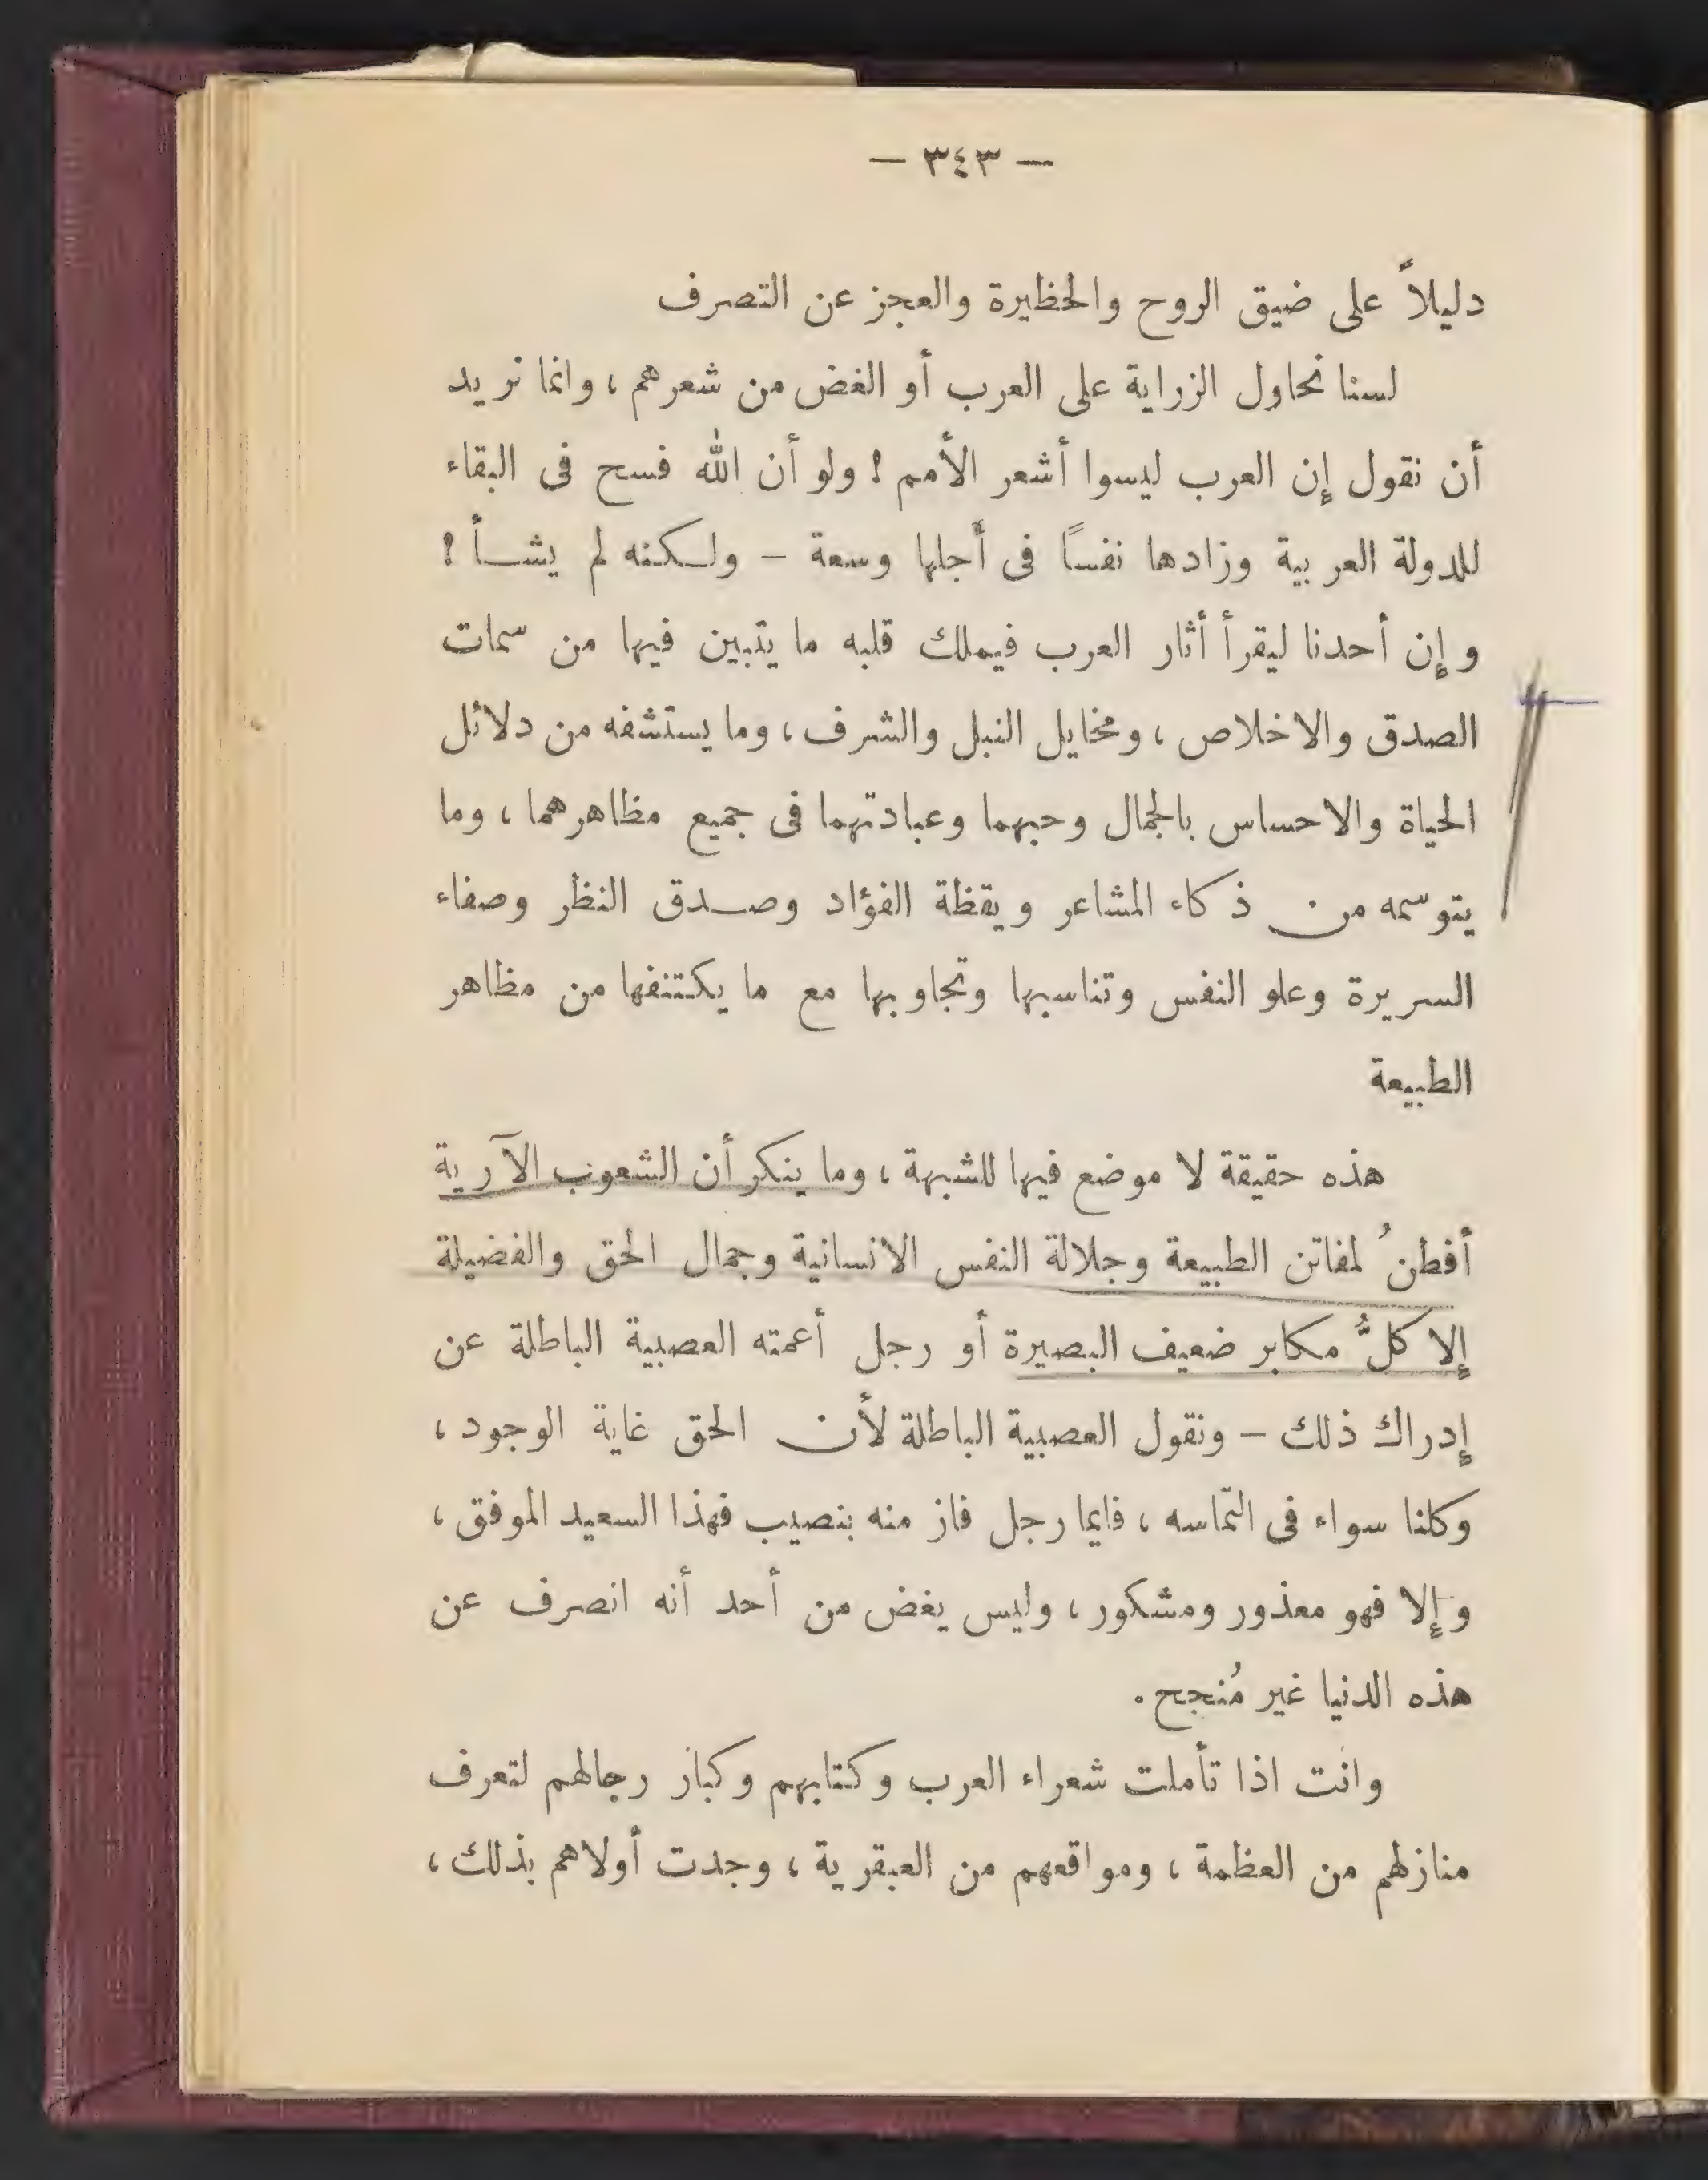 — ٣٤٣ —
دليلاً على ضيق الروح والحظيرة والعجز عن التصرف
لسنا نحاول الزراية على العرب أو الغض من شعرهم ، وانما نريد
أن نقول إن العرب ليسوا أشعر الأمم ! ولو أن الله فسح فى البقاء
للدولة العربية وزادها نفسًا فى أجلها وسعة – ولكنه لم يشأ !
وإن أحدنا ليقرأ أثار العرب فيملك قلبه ما يتبين فيها من سمات
الصدق والاخلاص ، ومخايل النبل والشرف ، وما يستشفه من دلائل
الحياة والاحساس بالجمال وحبهما وعبادتهما فى جميع مظاهرهما ، وما
يتوسمه من ذكاء المشاعر ويقظة الفؤاد وصدق النظر وصفاء
السريرة وعلو النفس وتناسبها وتجاوبها مع ما يكتنفها من مظاهر
الطبيعة
هذه حقيقة لا موضع فيها للشبهة ، وما ينكر أن الشعوب الآرية
أفطنُ لمفاتن الطبيعة وجلالة النفس الانسانية وجمال الحق والفضيلة
إلا كلُّ مكابر ضعيف البصيرة أو رجل أعمته العصبية الباطلة عن
إدراك ذلك – ونقول العصبية الباطلة لأن الحق غاية الوجود ،
وكلنا سواء فى التماسه ، فايما رجل فاز منه بنصيب فهذا السعيد الموفق ،
وإلا فهو معذور ومشكور ، وليس يغض من أحد أنه انصرف عن
هذه الدنيا غير مُنجح .
وانت اذا تأملت شعراء العرب وكتابهم وكبار رجالهم لتعرف
منازلهم من العظمة ، ومواقعهم من العبقرية ، وجدت أولاهم بذلك ،